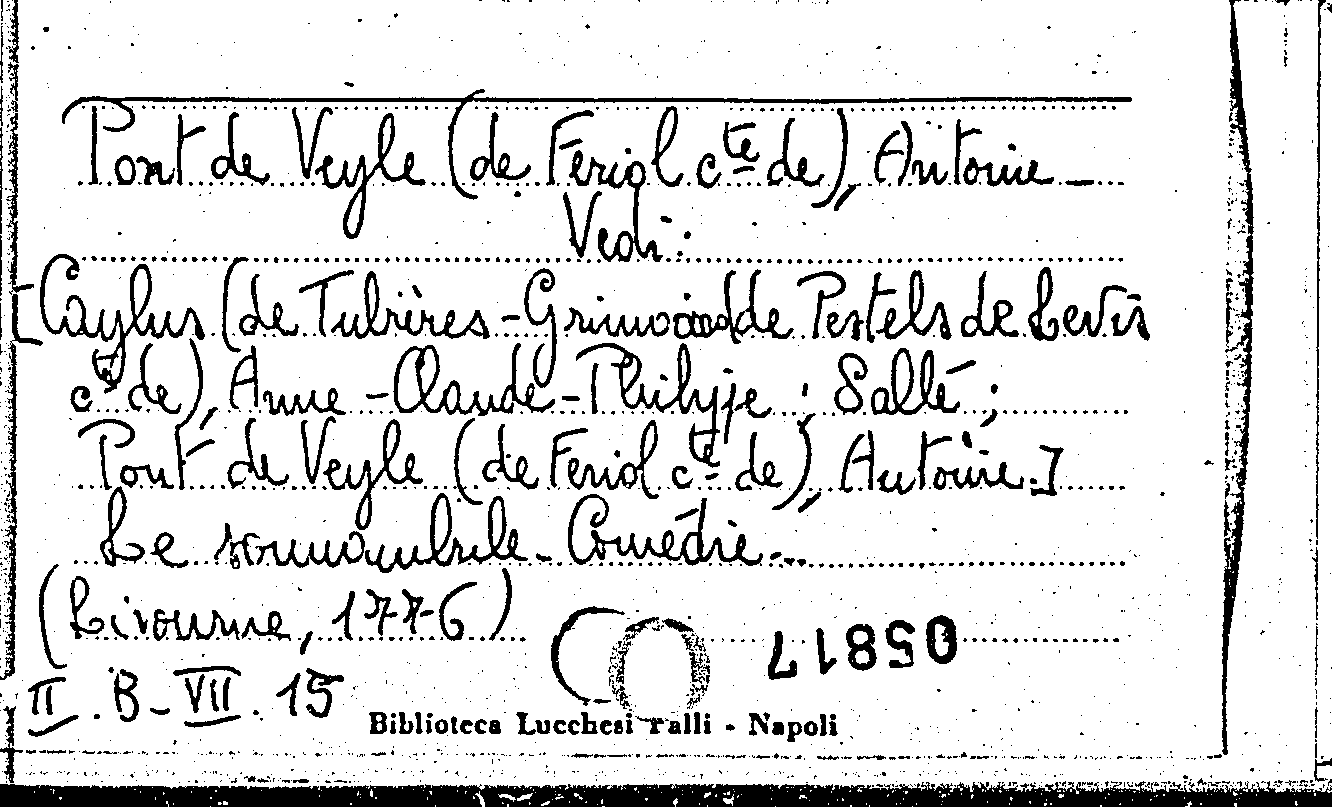 Pont de Veyle (de Feriol cte de), Antoine -
Vedi:
[Caylus (de Tubières - Grimoard de Pestels de Levis
cte de), Anne - Claude - Philippe ; Sallé ;
Pont de Veyle (de Feriol cte de), Antoine.]
Le somnambule - Comédie...
(Livourne, 1776)
05817
II . B - VII . 15
Biblioteca Lucchesi Palli - Napoli